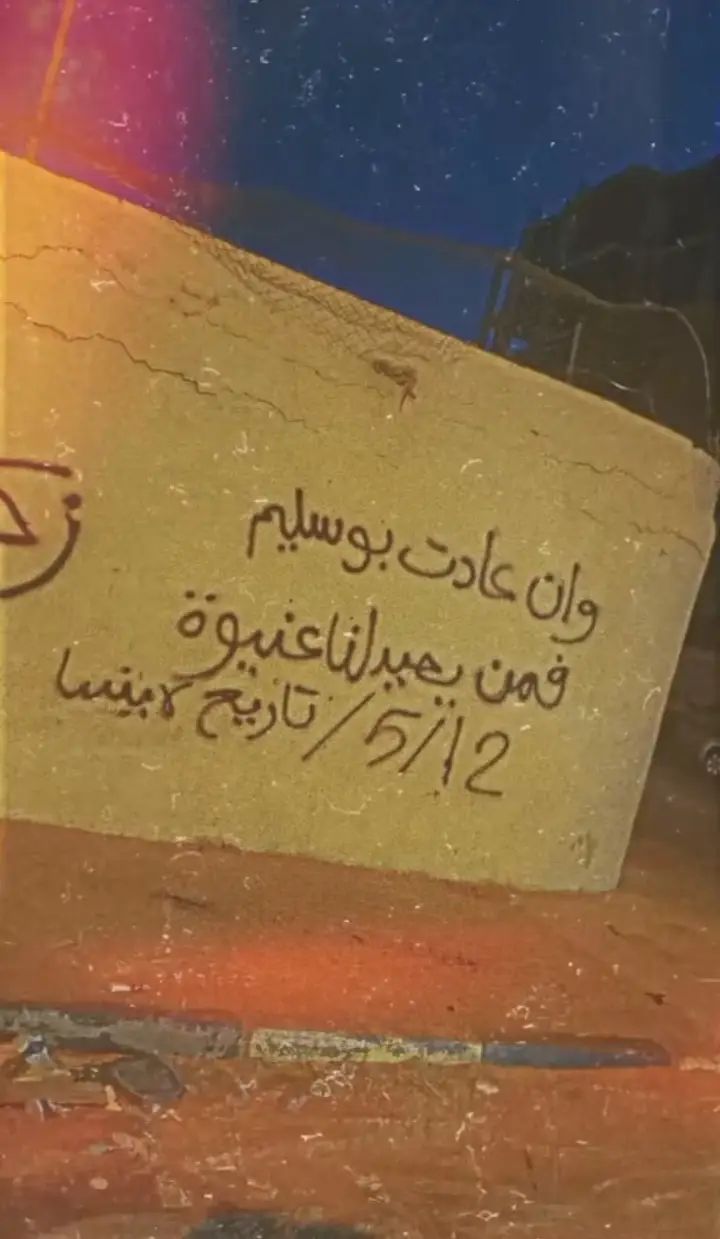 وان عادت بوسليم
فمن يعيد لنا غنيوة
5/12/ تاريخ لاينسا